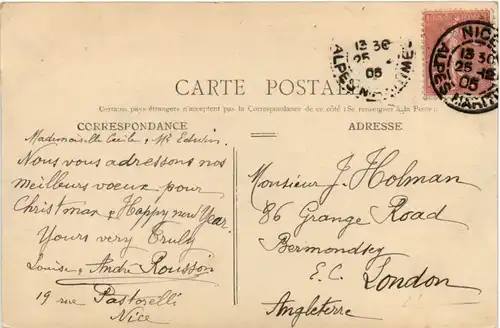 13 30
25
05
ALPES
NICE
13 30
25 - 12
05
ALPES MARITIMES
CARTE POSTALE
Certains pays étrangers n'acceptent pas la Correspondance de ce côté (Se renseigner à la Poste)
CORRESPONDANCE
Mademoiselle Cecile & Mr Edwin
Nous vous adressons nos
meilleurs voeux pour
Christmas & Happy new Year.
Yours very Truly
Louise & André Rousson
19 rue Pastorelli
Nice
ADRESSE
Monsieur J. Holman
86 Grange Road
Bermondsey
E.C. London
Angleterre